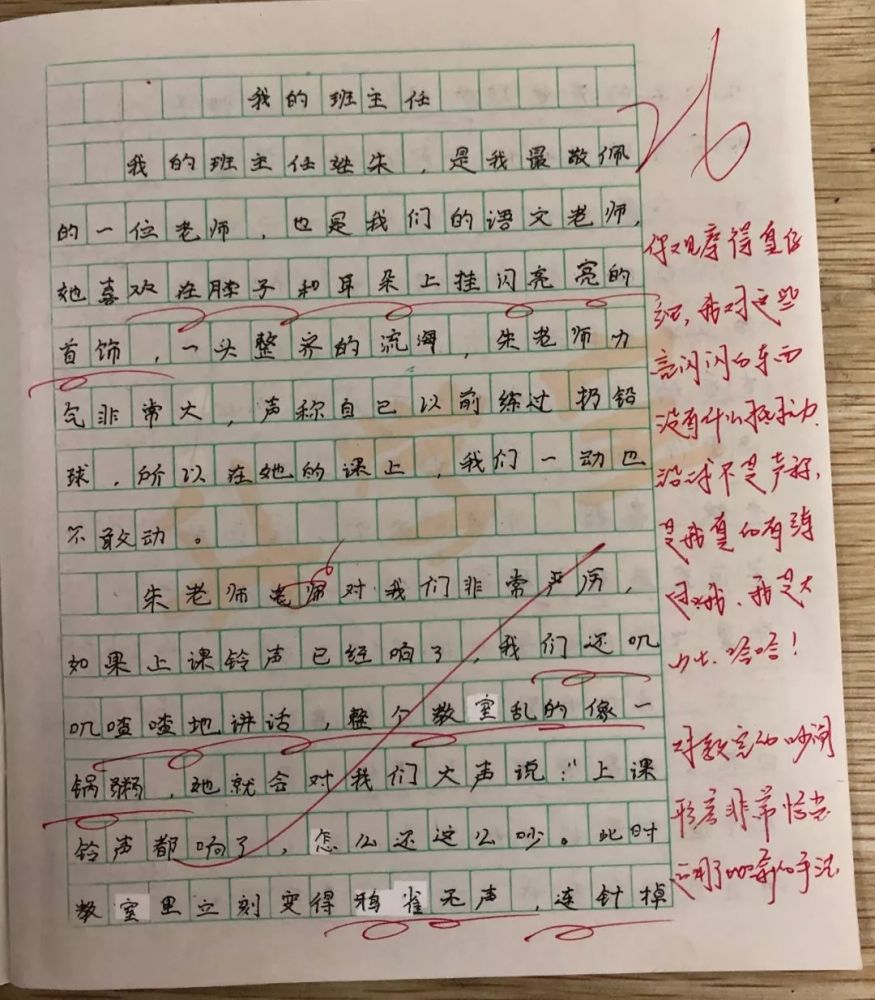 我的班主任
26
我的班主任姓朱,是我最敬佩
的一位老师,也是我们的语文老师,
她喜欢在脖子和耳朵上挂闪亮亮的
首饰,一头整齐的流海,朱老师力
气非常大,声称自己以前练过扔铅
球,所以在她的课上,我们一动也
不敢动。
朱老师老师对我们非常严厉,
如果上课铃声已经响了,我们还叽
叽喳喳地讲话,整个教室乱的像一
锅粥,她就会对我们大声说:“上课
铃声都响了,怎么还这么吵。此时
教室里立刻变得鸦雀无声,连针掉
你观察得真仔
我对这些
亮闪闪的东西
没有什么抵抗力.
不是声称,
是我真的有练
我是大
力士.哈哈!
对教室的吵闹
形容非常恰当
运用了比喻的手法